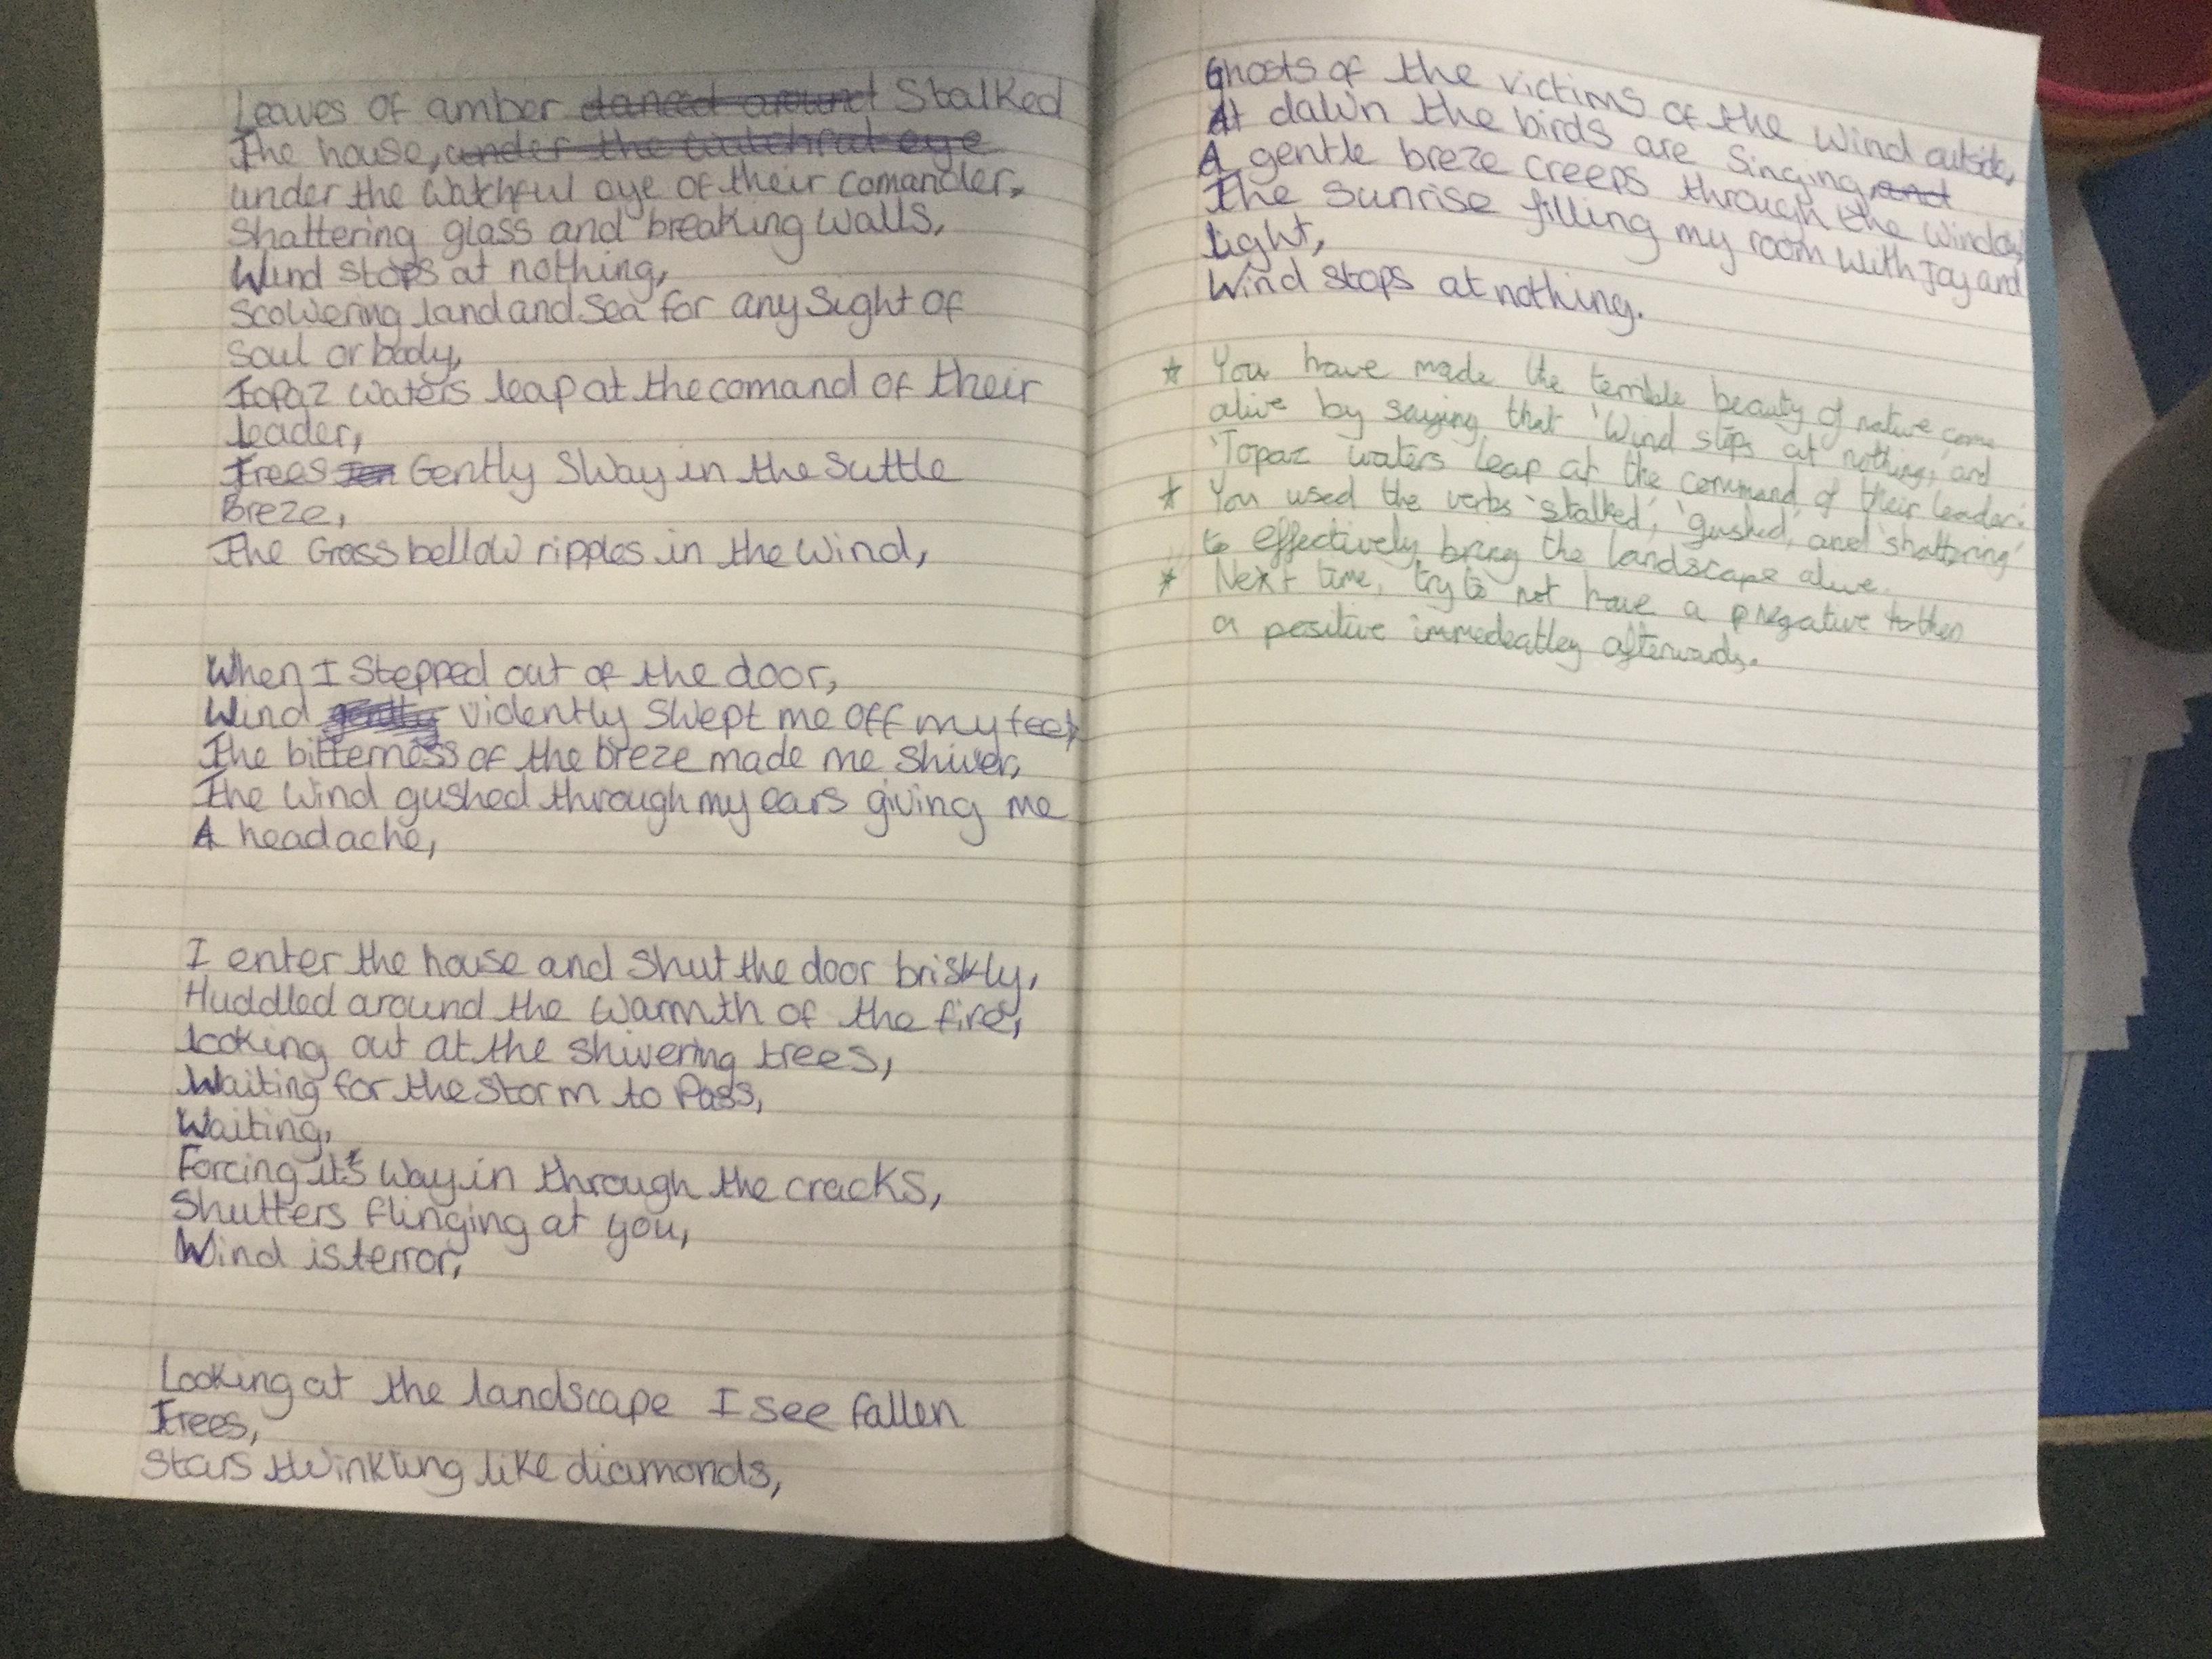 Leaves of amber danced around Stalked
The house, under the watchful eye
under the watchful eye of their comander,
Shattering glass and breaking walls,
Wind stops at nothing,
Scowering land and Sea for any Sight of
Soul or body,
Topaz waters leap at the comand of their
leader,
Trees Gently Sway in the Suttle
Breze,
The Grass bellow ripples in the Wind,
When I Stepped out of the door,
Wind gently violently Swept me off my feet,
The bitterness of the breze made me Shiver,
The Wind gushed through my ears giving me
A headache,
I enter the house and Shut the door briskly,
Huddled around the Warmth of the fire,
Looking out at the Shivering trees,
Waiting for the Storm to Pass,
Waiting,
Forcing it's Way in through the cracks,
Shutters flinging at you,
Wind is terror,
Looking at the landscape I see fallen
Trees,
Stars twinkling like diamonds,
Ghosts of the victims of the Wind outside,
At dawn the birds are Singing, and
A gentle breze creeps through the Window,
The Sunrise filling my room With Joy and
Light,
Wind Stops at nothing.
* You have made the terrible beauty of nature come
alive by saying that 'Wind stops at nothing,' and
'Topaz waters leap at the command of their leader.'
* You used the verbs 'stalked', 'gushed', and 'shattering'
to effectively bring the landscape alive.
* Next time, try to not have a negative then
a positive immedeatley afterwards.